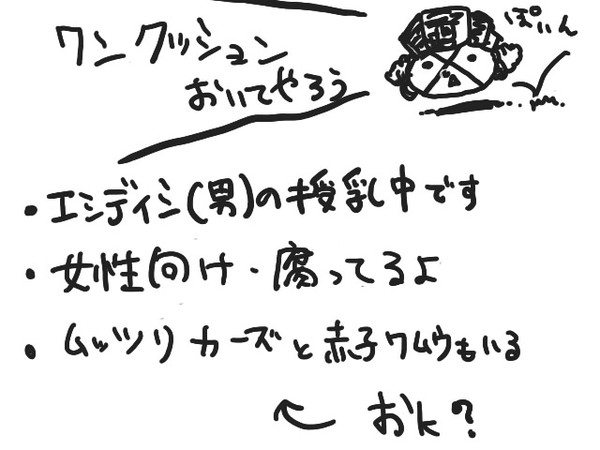 ワンクッション
おいてやろう
ぽいん
・エシディシ(男)の授乳中です
・女性向け・腐ってるよ
・ムッツリカーズと赤子ワムウもいる
← おk?